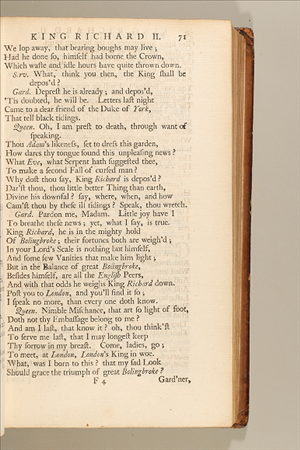 KING RICHARD II. 71
We lop away, that bearing boughs may live;
Had he done so, himself had borne the Crown,
Which waste and idle hours have quite thrown down.
Serv. What, think you then, the King shall be
depos'd?
Gard. Deprest he is already; and depos'd,
'Tis doubted, he will be. Letters last night
Came to a dear friend of the Duke of York,
That tell black tidings.
Queen. Oh, I am prest to death, through want of
speaking.
Thou Adam's likeness, set to dress this garden,
How dares thy tongue sound this unpleasing news?
What Eve, what Serpent hath suggested thee,
To make a second Fall of cursed man?
Why dost thou say, King Richard is depos'd?
Dar'st thou, thou little better Thing than earth,
Divine his downfal? say, where, when, and how
Cam'st thou by these ill tidings? Speak, thou wretch.
Gard. Pardon me, Madam. Little joy have I
To breathe these news; yet, what I say, is true.
King Richard, he is in the mighty hold
Of Bolingbroke; their fortunes both are weigh'd;
In your Lord's Scale is nothing but himself,
And some few Vanities that make him light;
But in the Balance of great Bolingbroke,
Besides himself, are all the English Peers,
And with that odds he weighs King Richard down.
Post you to London, and you'll find it so;
I speak no more, than every one doth know.
Queen. Nimble Mischance, that art so light of foot,
Doth not thy Embassage belong to me?
And am I last, that know it? oh, thou think'st
To serve me last, that I may longest keep
Thy sorrow in my breast. Come, ladies, go;
To meet, at London, London's King in woe.
What, was I born to this? that my sad Look
Should grace the triumph of great Bolingbroke?
F 4 Gard'ner,